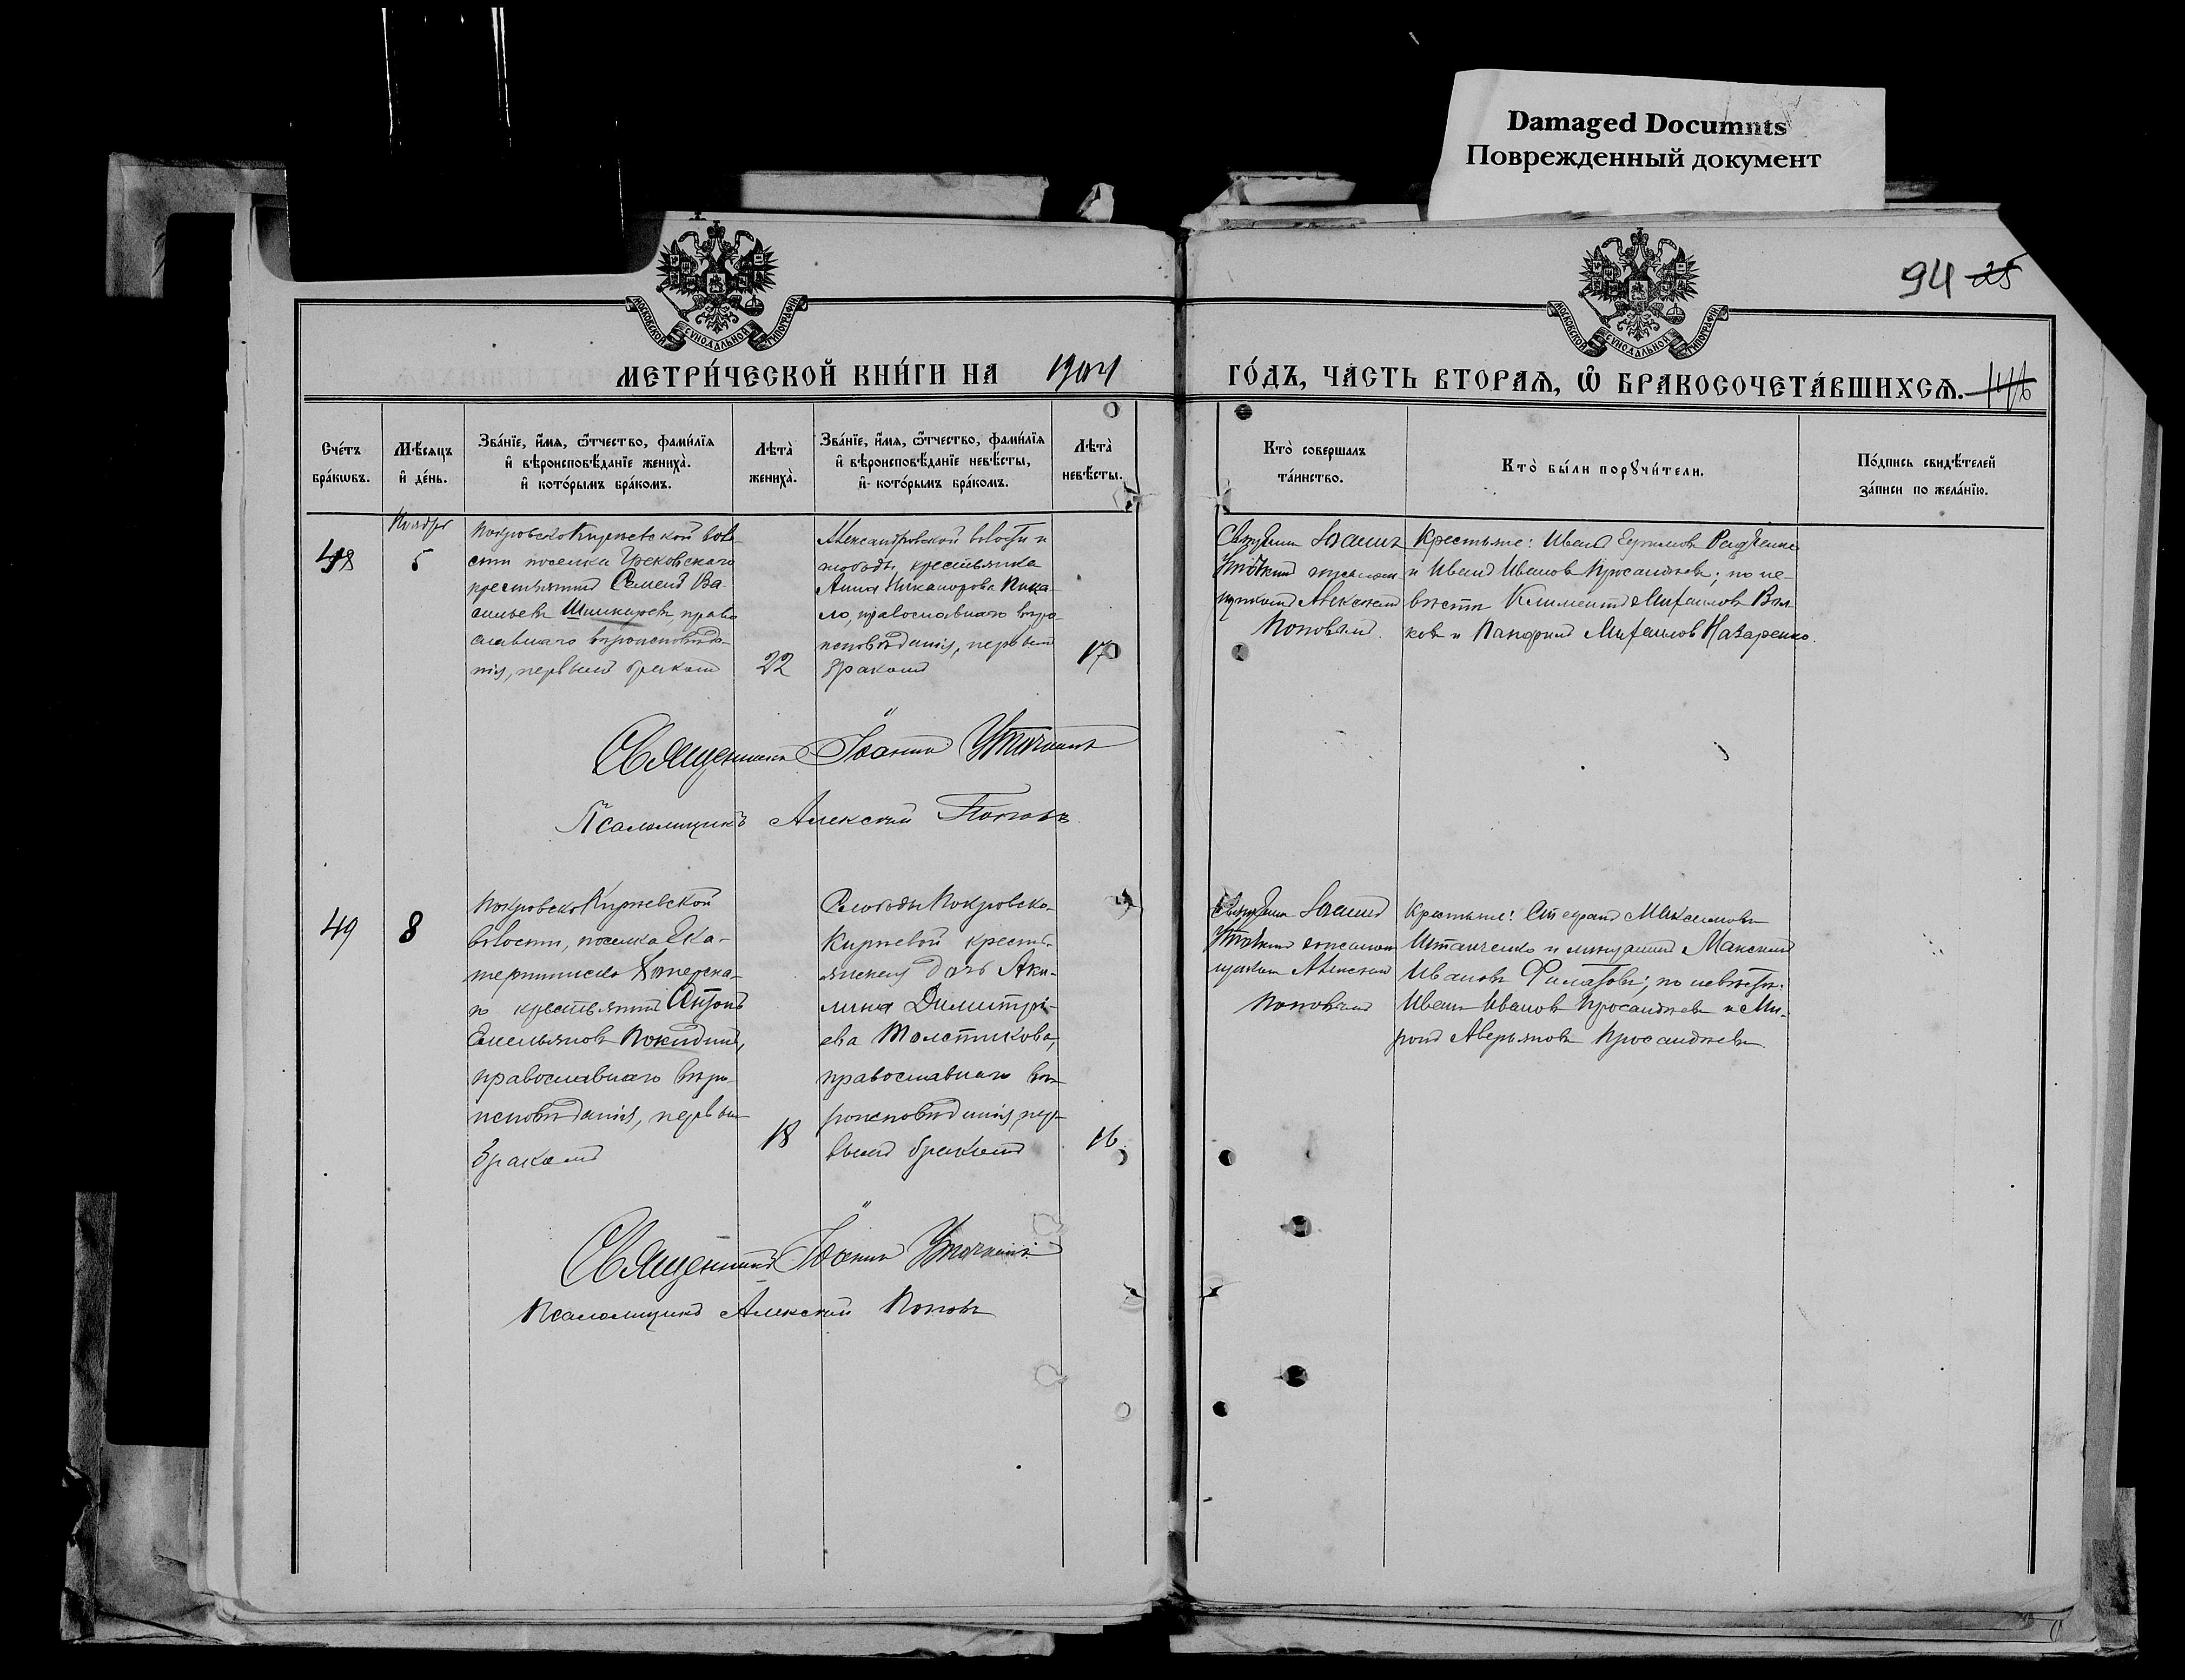 Damaged Documnts
Поврежденный документ
МОСКОВСКОЙ СУНОДАЛЬНОЙ ТИПОГРАФІИ
МОСКОВСКОЙ СУНОДАЛЬНОЙ ТИПОГРАФІИ
94 25
МЕТРИ́ЧЕСКОЙ КНИ́ГИ НА 1904
ГО́ДЪ, ЧА́СТЬ ВТОРАѦ, Ѡ҆ БРАКОСОЧЕТА́ВШИХСѦ.
Сче́тъ бра́кѡвъ.
Мѣ́сяцъ и҆ де́нь.
Зва́нїе, и҆́мя, ѻ҆́тчество, фами́лїя
и҆ вѣроисповѣ́данїе жениха̀.
и҆ кото́рымъ бра́комъ.
Лѣта̀ жениха̀.
Зва́нїе, и҆́мя, ѻ҆́тчество, фами́лїя
и҆ вѣроисповѣ́данїе невѣ́сты,
и҆ кото́рымъ бра́комъ.
Лѣта̀ невѣ́сты.
Кто̀ соверша́лъ
та́инство.
Кто̀ бы́ли порꙋчи́тели.
По́дпись свидѣ́телей
за́писи по жела́нїю.
Ноябрь
48
5
Покровско-Киреевской воло-
сти поселка Грековскаго
крестьянинъ Семенъ Ва-
сильевъ Шишкаревъ, право
славнаго вѣроисповѣда-
нія, первымъ бракомъ
22
Александровской волости и
слободы, крестьянка
Анна Никанорова Пика-
ло, православнаго вѣро
исповѣданія, первымъ
бракомъ
17
Іоаннъ
Алексеемъ
Поповымъ.
Крестьяне: Иванъ
и Иванъ Ивановъ; по не-
вѣстѣ Климентъ Михаиловъ Вол-
ковъ и Панфилъ Михаиловъ Назаренко.
Священникъ Іоаннъ
Псаломщикъ Алексѣй Поповъ
49
8
Покровско-Киреевской
волости, поселка Ека-
териниско-Хоперска-
го крестьянинъ Антонъ
Емельяновъ Покидинъ,
православнаго вѣро-
исповѣданія, первымъ
бракомъ
18
Слободы Покровско-
Киреевой крестья-
янская дочь Аки-
лина Димитрі-
ева Толстикова,
православнаго вѣ-
роисповѣданія, пер-
вымъ бракомъ
16
Алексѣй
Поповымъ
Крестьяне: Максимовъ
Штанченко и Максимъ
Ивановъ Филатовъ; по невѣстѣ:
Иванъ Ивановъ и Ми-
ронъ Аверьяновъ
Священникъ Іоаннъ
Псаломщикъ Алексѣй Поповъ